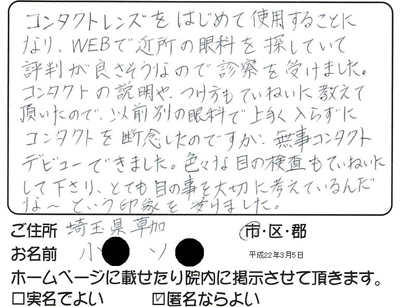 コンタクトレンズをはじめて使用することに
なり、WEBで近所の眼科を探していて
評判が良さそうなので診察を受けました。
コンタクトの説明や、つけ方もていねいに教えて
頂いたので、以前別の眼科で上手く入らずに
コンタクトを断念したのですが、無事コンタクト
デビューできました。色々な目の検査もていねいに
して下さり、とても目の事を大切に考えているんだ
な〜という印象を受けました。
ご住所 埼玉県草加 市・区・郡
お名前 小 ソ 平成22年3月5日
ホームページに載せたり院内に掲示させて頂きます。
□実名でよい ☑匿名ならよい